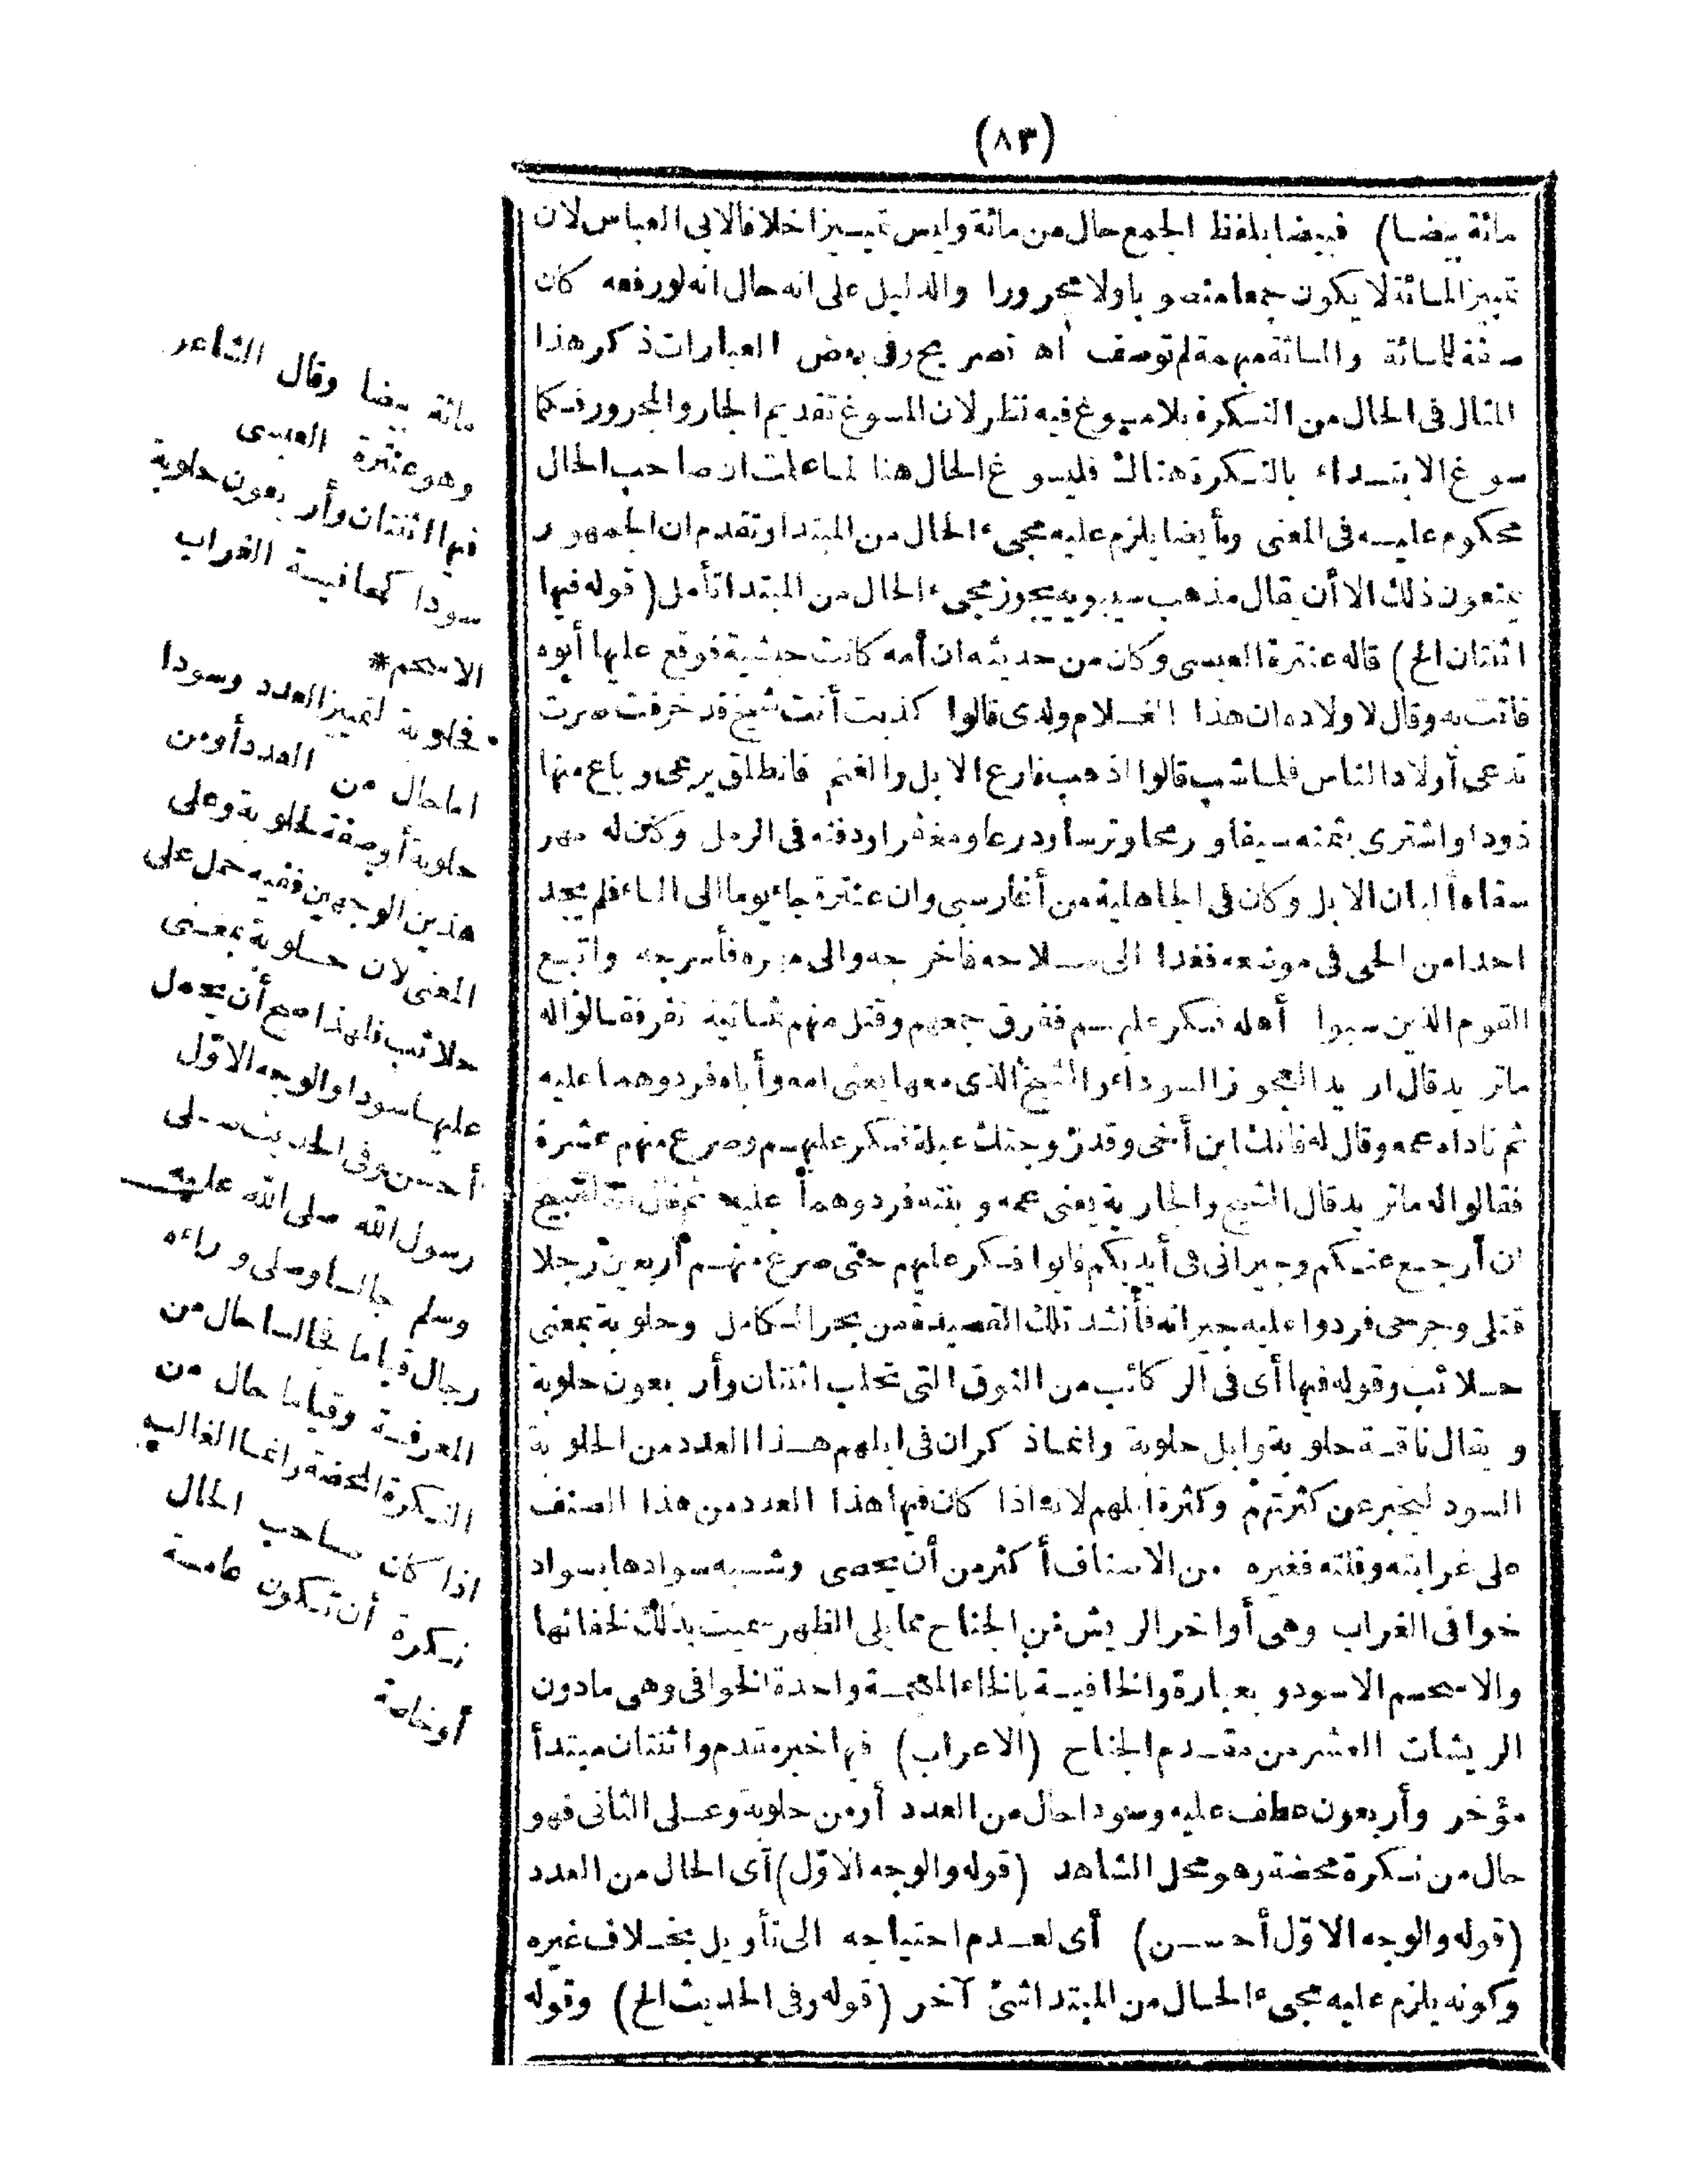 (٨٣)
مائة بيضا) فبيضا بلفظ الجمع حال من مائة وليس تمييزا خلافا لابى العباس لان
تمييز المائة لا يكون جمعا منصوبا ولا مجرورا والدليل على انه حال انه لو رفعه كان
صفة للمائة والمائة مبهمة لم توصف اه تصريح وفى بعض العبارات ذكر هذا
المثال فى الحال من النكرة بلا مسوغ فيه نظر لان المسوغ تقديم الجار والمجرور فكما
سوغ الابتداء بالنكرة هناك فليسوغ الحال هنا لما علمت ان صاحب الحال
محكوم عليه فى المعنى وأيضا يلزم عليه مجىء الحال من المبتدا وتقدم ان الجمهور
يمنعون ذلك الا أن يقال مذهب سيبويه يجوز مجىء الحال من المبتدا تأمل (قوله فيها
اثنتان الخ) قاله عنترة العبسى وكان من حديثه ان أمه كانت حبشية فوقع عليها أبوه
فاتت به وقال لاولاده ان هذا الغلام ولدى قالوا كذبت أنت شيخ قد خرفت صرت
تدعى أولاد الناس فلما شب قالوا اذهب فارع الابل والغنم فانطلق يرعى وباع منها
ذودا واشترى بثمنه سيفا ورمحا وترسا ودرعا ومغفرا ودفنه فى الرمل وكان له مهر
سقاه ألبان الابل وكان فى الجاهلية من أغار سبى وان عنترة جاء يوما الى الماء فلم يجد
احدا من الحى فى موضعه فغدا الى سلاحه فأخرجه والى مهره فأسرجه واتبع
القوم الذين سبوا أهله فكر عليهم ففرق جمعهم وقتل منهم ثمانية نفر فقالوا له
ما تريد قال اريد العجوز السوداء والشيخ الذى معها يعنى امه وأباه فردوهما عليه
ثم ناداه عمه وقال له فانك ابن أخى وقد زوجتك عبلة فكر عليهم وصرع منهم عشرة
فقالوا له ما تريد قال الشيخ والجارية يعنى عمه وبنته فردوهما عليه ثم قال
ان أرجع عنكم وجيرانى فى أيديكم فابوا فكر عليهم حتى صرع منهم أربعين رجلا
قتلى وجرحى فردوا عليه جيرانه فأنشد تلك القصيدة من بحر الكامل وحلوبة بمعنى
حلائب وقوله فيها أى فى الركائب من النوق التى تحلب اثنتان وأربعون حلوبة
ويقال ناقة حلوبة وابل حلوبة وانما ذكر ان فى ابلهم هذا العدد من الحلوبة
السود ليخبر عن كثرتهم وكثرة ابلهم لانه اذا كان فيها هذا العدد من هذا الصنف
على غرابته وقلته فغيره من الاصناف أكثر من أن يحصى وشبه سوادها بسواد
خوافى الغراب وهى أواخر الريش من الجناح مما يلى الظهر سميت بذلك لخفائها
والاسحم الاسود وبعبارة والخافية بالخاء المعجمة واحدة الخوافى وهى مادون
الريشات العشر من مقدم الجناح (الاعراب) فيها خبر مقدم واثنتان مبتدأ
مؤخر وأربعون عطف عليه وسودا حال من العدد أو من حلوبة وعلى الثانى فهو
حال من نكرة محضة وهو محل الشاهد (قوله والوجه الاوّل) أى الحال من العدد
(قوله والوجه الاوّل أحسن) أى لعدم احتياجه الى تأويل بخلاف غيره
وكونه يلزم عليه مجىء الحال من المبتدا شئ آخر (قوله وفى الحديث الخ) وقوله
مائة بيضا وقال الشاعر
وهو عنترة العبسى
فيها اثنتان وأربعون حلوبة
سودا كخافية الغراب
الاسحم*
فحلوبة لتمييز العدد وسودا
اما حال من العدد أو من
حلوبة أو صفة لحلوبة وعلى
هذين الوجهين ففيه حمل على
المعنى لان حلوبة بمعنى
حلائب فلهذا صح أن يحمل
عليها سودا والوجه الاوّل
أحسن وفى الحديث صلى
رسول الله صلى الله عليه
وسلم جالسا وصلى وراءه
رجال قياما فجالسا حال من
المعرفة وقياما حال من
النكرة المحضة وانما الغالب
اذا كان صاحب الحال
نكرة أن تكون عامة
أو خاصة